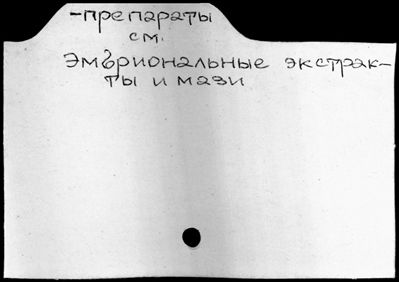 -препараты
см.
Эмбриональные экстрак-
ты и мази